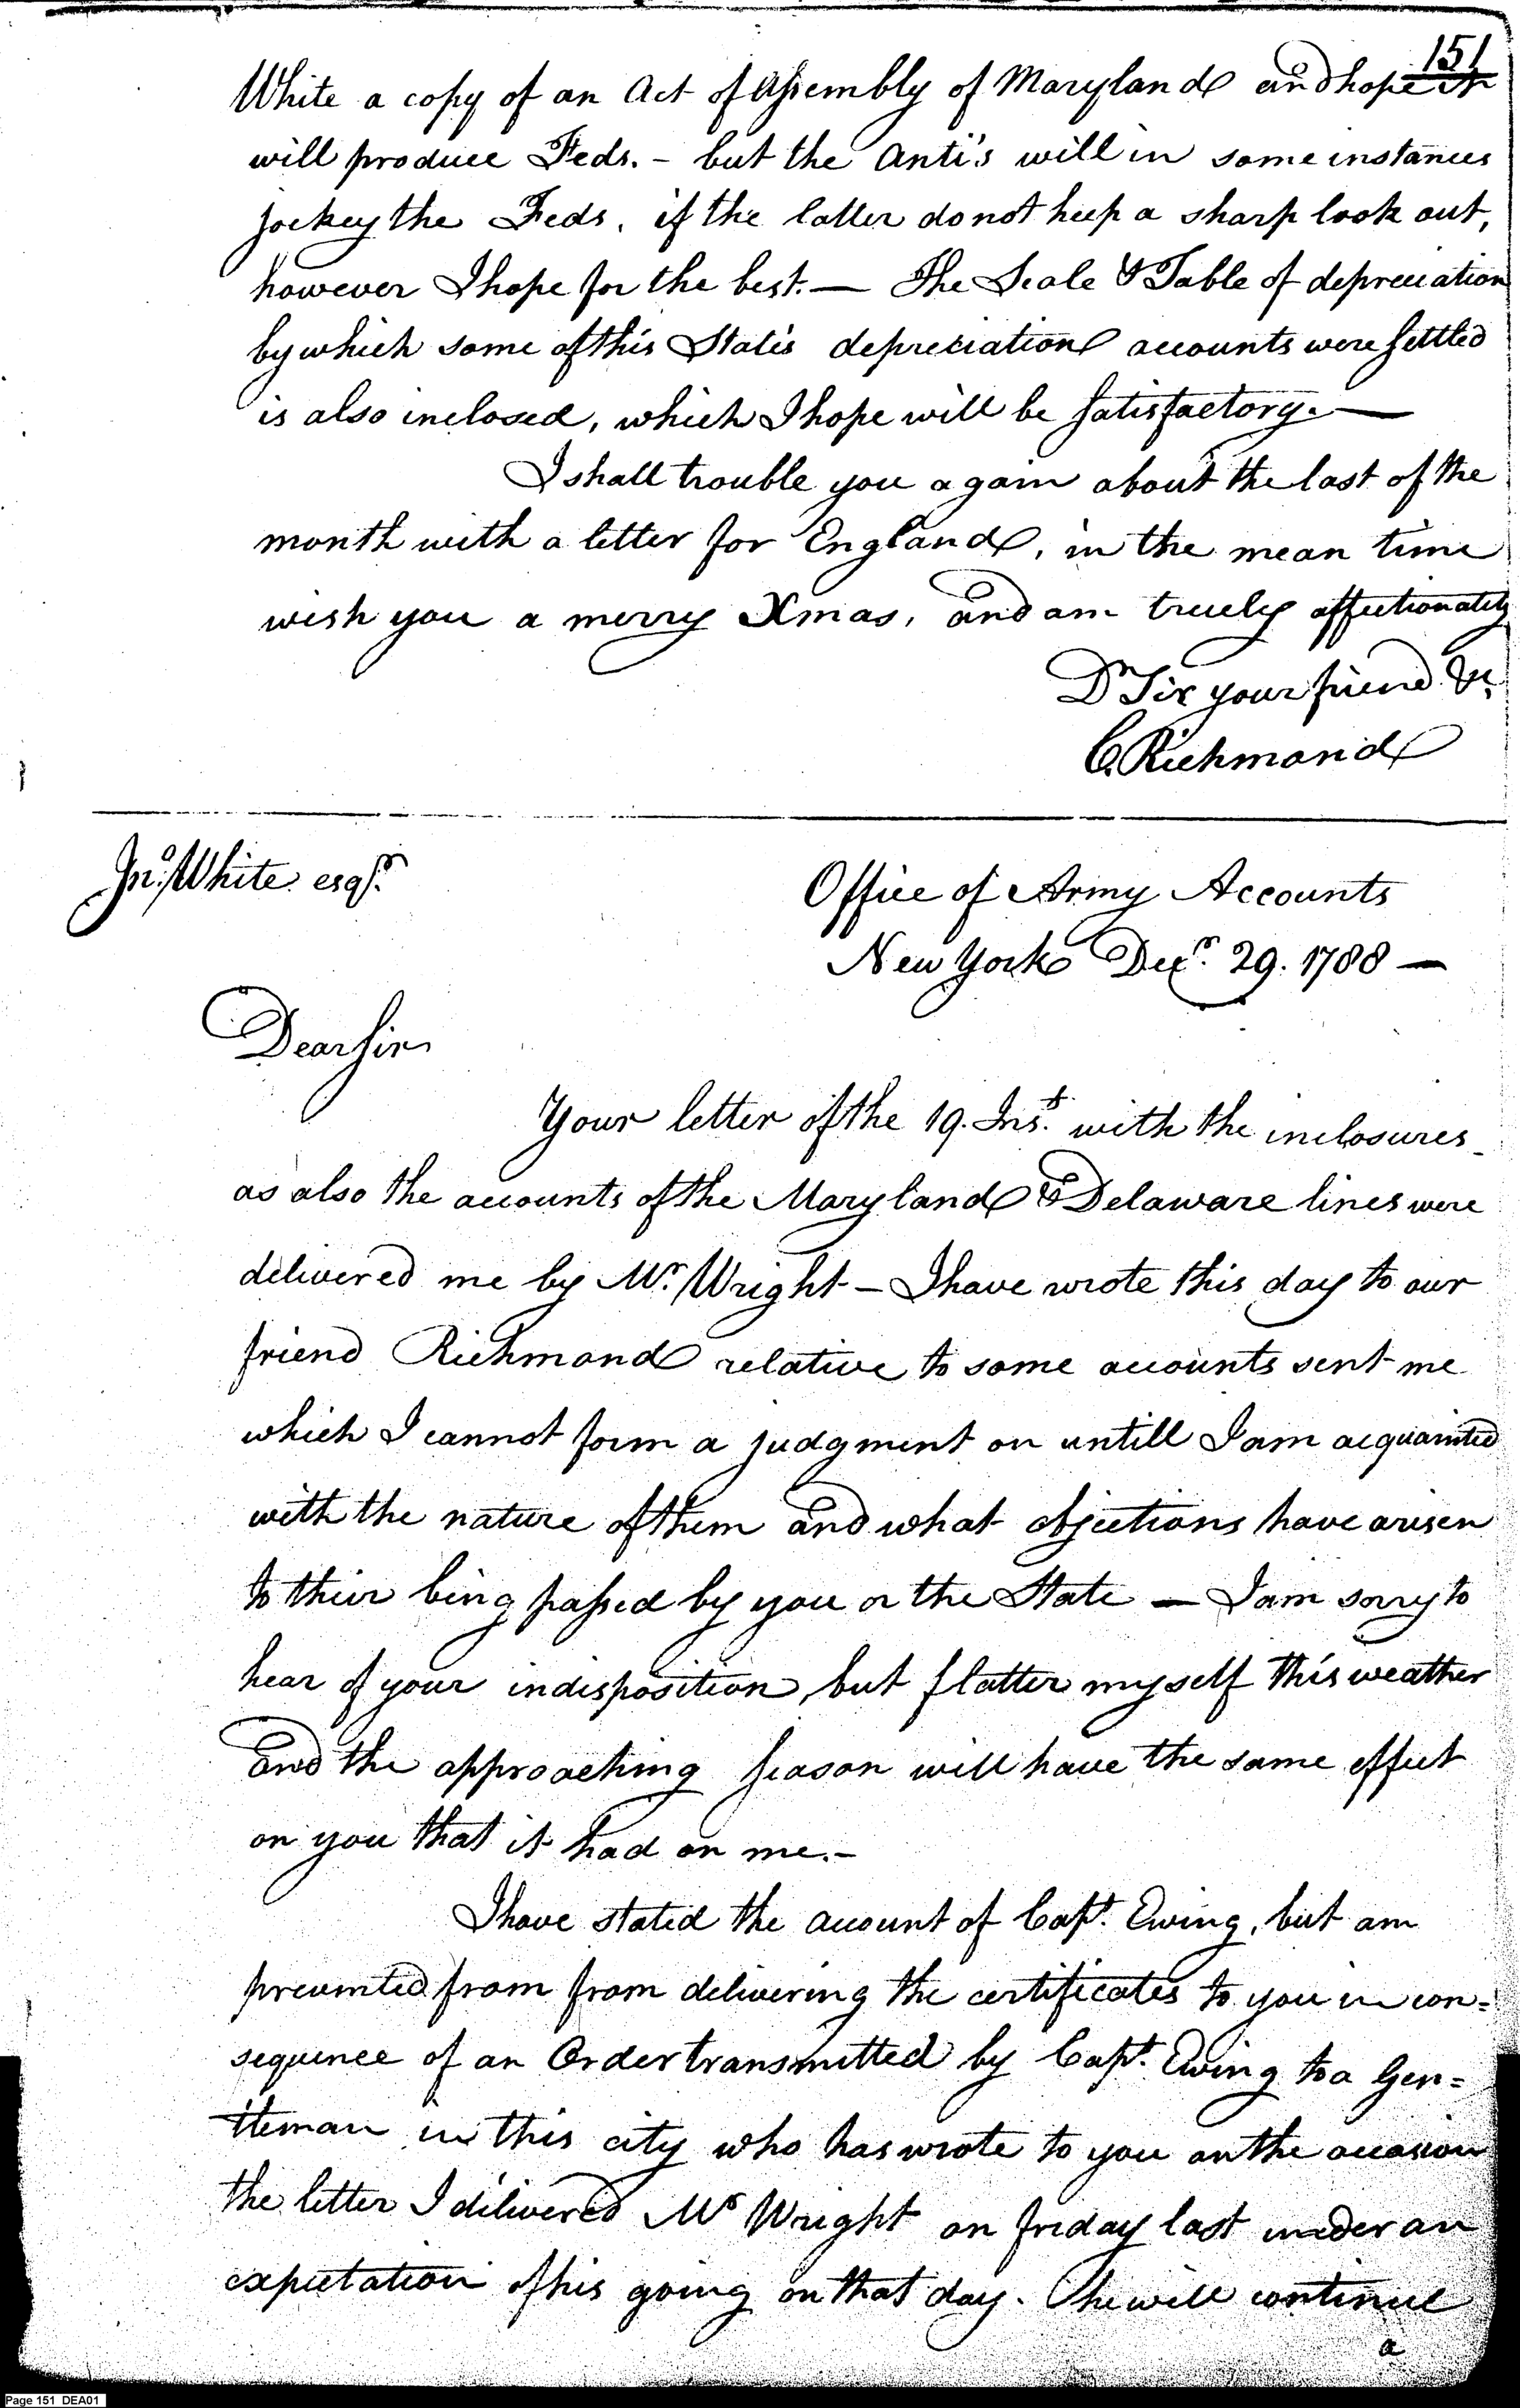 151
White a copy of an Act of Assembly of Maryland and hope it
will produce Feds. – but the Anti's will in some instances
jockey the Feds, if the latter do not keep a sharp look out,
however I hope for the best. — The Scale & Table of depreciation
by which some of this State's depreciation accounts were settled
is also inclosed, which I hope will be satisfactory. —
I shall trouble you again about the last of the
month with a letter for England, in the mean time
wish you a merry Xmas, and am truely affectionately
Dr Sir your friend &c.
C. Richmond
Jno. White esqr.
Office of Army Accounts
New York Decr. 29. 1788 —
Dear Sir
Your letter of the 19. Inst. with the inclosures
as also the accounts of the Maryland & Delaware lines were
delivered me by Mr. Wright – I have wrote this day to our
friend Richmond relative to some accounts sent me
which I cannot form a judgment on untill I am acquainted
with the nature of them and what objections have arisen
to their being passed by you or the State — I am sorry to
hear of your indisposition, but flatter myself this weather
and the approaching season will have the same effect
on you that it had on me. –
I have stated the account of Capt. Ewing, but am
prevented from from delivering the certificates to you in con=
sequence of an Order transmitted by Capt. Ewing to a Gen=
tleman in this city who has wrote to you on the occasion
the letter I delivered Mr Wright on friday last under an
expectation of his going on that day. he will continue
a
Page 151 DEA01